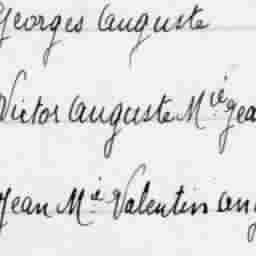 Georges Auguste
Victor Auguste M.ie Jea
Jean M.ie Valentin Aug